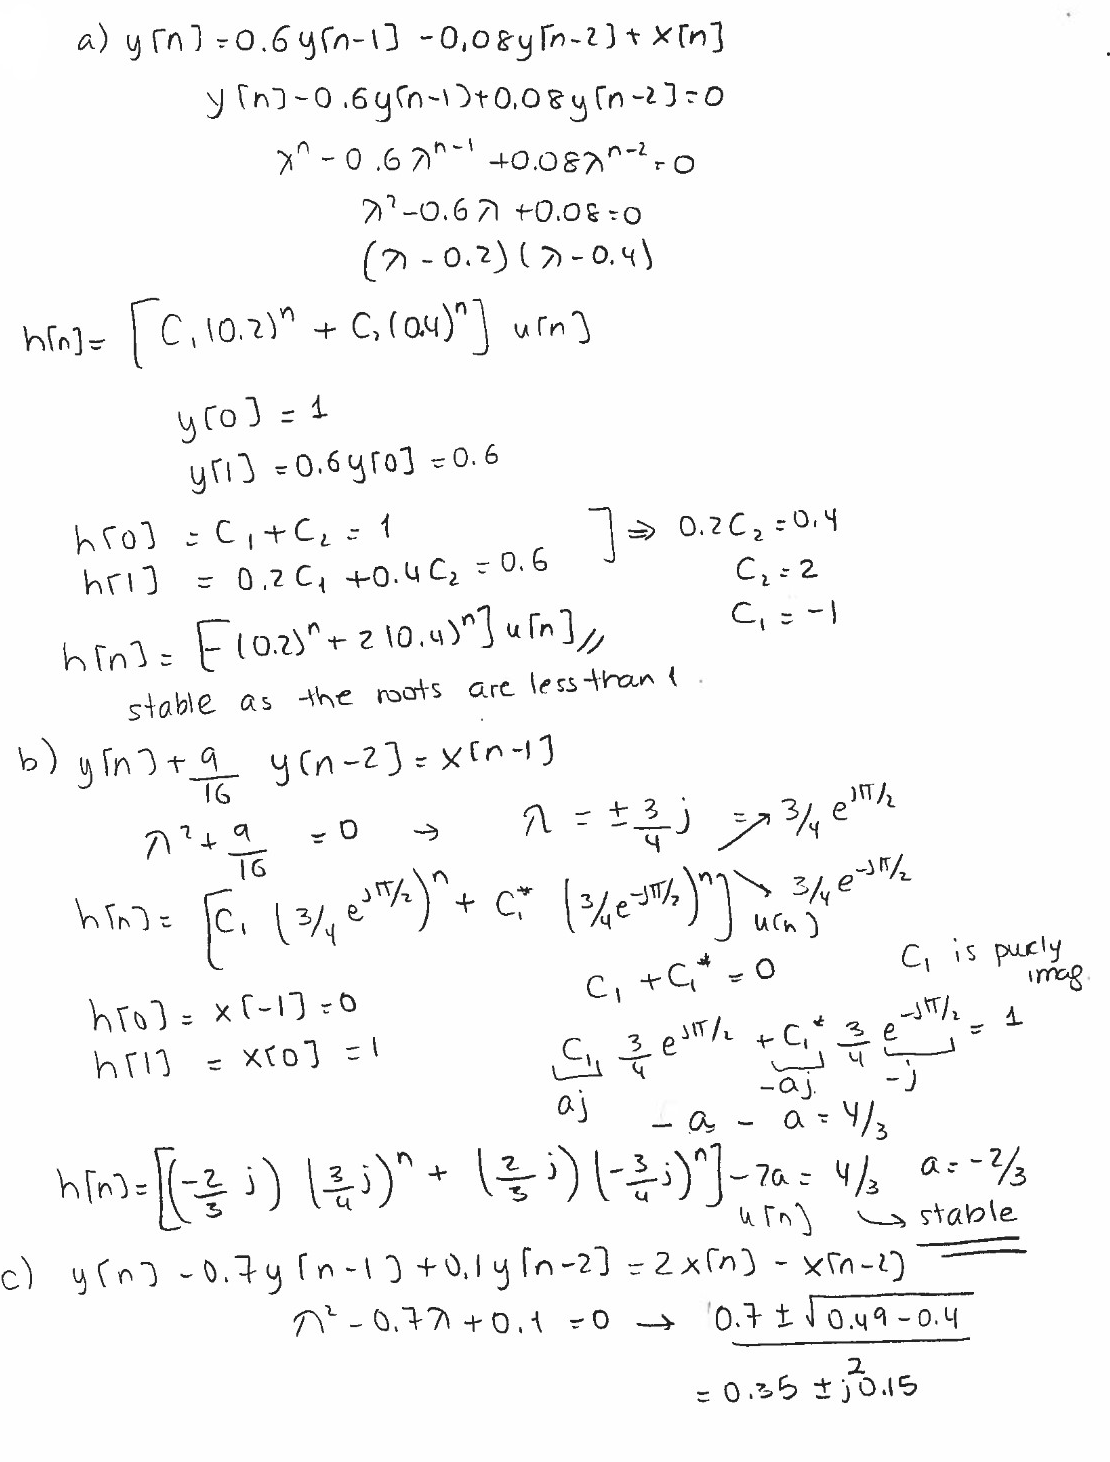 a) y[n] = 0.6y[n-1] - 0.08y[n-2] + x[n]
y[n] - 0.6y[n-1] + 0.08y[n-2] = 0
λ^n - 0.6λ^{n-1} + 0.08λ^{n-2} = 0
λ² - 0.6λ + 0.08 = 0
(λ - 0.2)(λ - 0.4)
h[n] = [C₁(0.2)^n + C₂(0.4)^n] u[n]
y[0] = 1
y[1] = 0.6y[0] = 0.6
h[0] = C₁ + C₂ = 1 ] ⇒ 0.2C₂ = 0.4
h[1] = 0.2C₁ + 0.4C₂ = 0.6 C₂ = 2
C₁ = -1
h[n] = [-(0.2)^n + 2(0.4)^n] u[n] //
stable as the roots are less than 1.
b) y[n] + 9/16 y[n-2] = x[n-1]
λ² + 9/16 = 0 → λ = ± 3/4 j = ↗ 3/4 e^{jπ/2}
↘ 3/4 e^{-jπ/2}
h[n] = [C₁ (3/4 e^{jπ/2})^n + C₁* (3/4 e^{-jπ/2})^n] u[n]
C₁ + C₁* = 0 C₁ is purely imag.
h[0] = x[-1] = 0
h[1] = x[0] = 1 C₁ 3/4 e^{jπ/2} + C₁* 3/4 e^{-jπ/2} = 1
aj -aj -j
-a - a = 4/3
h[n] = [(-2/3 j)(3/4 j)^n + (2/3 j)(-3/4 j)^n] u[n] -2a = 4/3 a = -2/3
↳ stable
c) y[n] - 0.7y[n-1] + 0.1y[n-2] = 2x[n] - x[n-2]
λ² - 0.7λ + 0.1 = 0 → 0.7 ± √0.49 - 0.4
2
= 0.35 ± j0.15